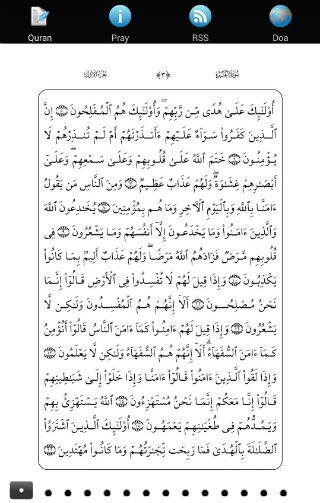 Quran
Pray
RSS
Doa
﴿٣﴾
أُوْلَـٰٓئِكَ عَلَىٰ هُدًى مِّن رَّبِّهِمْ ۖ وَأُوْلَـٰٓئِكَ هُمُ ٱلْمُفْلِحُونَ ۝ إِنَّ
ٱلَّذِينَ كَفَرُواْ سَوَآءٌ عَلَيْهِمْ ءَأَنذَرْتَهُمْ أَمْ لَمْ تُنذِرْهُمْ لَا
يُؤْمِنُونَ ۝ خَتَمَ ٱللَّهُ عَلَىٰ قُلُوبِهِمْ وَعَلَىٰ سَمْعِهِمْ ۖ وَعَلَىٰٓ
أَبْصَـٰرِهِمْ غِشَـٰوَةٌ ۖ وَلَهُمْ عَذَابٌ عَظِيمٌ ۝ وَمِنَ ٱلنَّاسِ مَن يَقُولُ
ءَامَنَّا بِٱللَّهِ وَبِٱلْيَوْمِ ٱلْـَٔاخِرِ وَمَا هُم بِمُؤْمِنِينَ ۝ يُخَـٰدِعُونَ ٱللَّهَ
وَٱلَّذِينَ ءَامَنُواْ وَمَا يَخْدَعُونَ إِلَّآ أَنفُسَهُمْ وَمَا يَشْعُرُونَ ۝ فِى
قُلُوبِهِم مَّرَضٌ فَزَادَهُمُ ٱللَّهُ مَرَضًا ۖ وَلَهُمْ عَذَابٌ أَلِيمٌۢ بِمَا كَانُواْ
يَكْذِبُونَ ۝ وَإِذَا قِيلَ لَهُمْ لَا تُفْسِدُواْ فِى ٱلْأَرْضِ قَالُوٓاْ إِنَّمَا
نَحْنُ مُصْلِحُونَ ۝ أَلَآ إِنَّهُمْ هُمُ ٱلْمُفْسِدُونَ وَلَـٰكِن لَّا
يَشْعُرُونَ ۝ وَإِذَا قِيلَ لَهُمْ ءَامِنُواْ كَمَآ ءَامَنَ ٱلنَّاسُ قَالُوٓاْ أَنُؤْمِنُ
كَمَآ ءَامَنَ ٱلسُّفَهَآءُ ۗ أَلَآ إِنَّهُمْ هُمُ ٱلسُّفَهَآءُ وَلَـٰكِن لَّا يَعْلَمُونَ ۝
وَإِذَا لَقُواْ ٱلَّذِينَ ءَامَنُواْ قَالُوٓاْ ءَامَنَّا وَإِذَا خَلَوْاْ إِلَىٰ شَيَـٰطِينِهِمْ
قَالُوٓاْ إِنَّا مَعَكُمْ إِنَّمَا نَحْنُ مُسْتَهْزِءُونَ ۝ ٱللَّهُ يَسْتَهْزِئُ بِهِمْ
وَيَمُدُّهُمْ فِى طُغْيَـٰنِهِمْ يَعْمَهُونَ ۝ أُوْلَـٰٓئِكَ ٱلَّذِينَ ٱشْتَرَوُاْ
ٱلضَّلَـٰلَةَ بِٱلْهُدَىٰ فَمَا رَبِحَت تِّجَـٰرَتُهُمْ وَمَا كَانُواْ مُهْتَدِينَ ۝